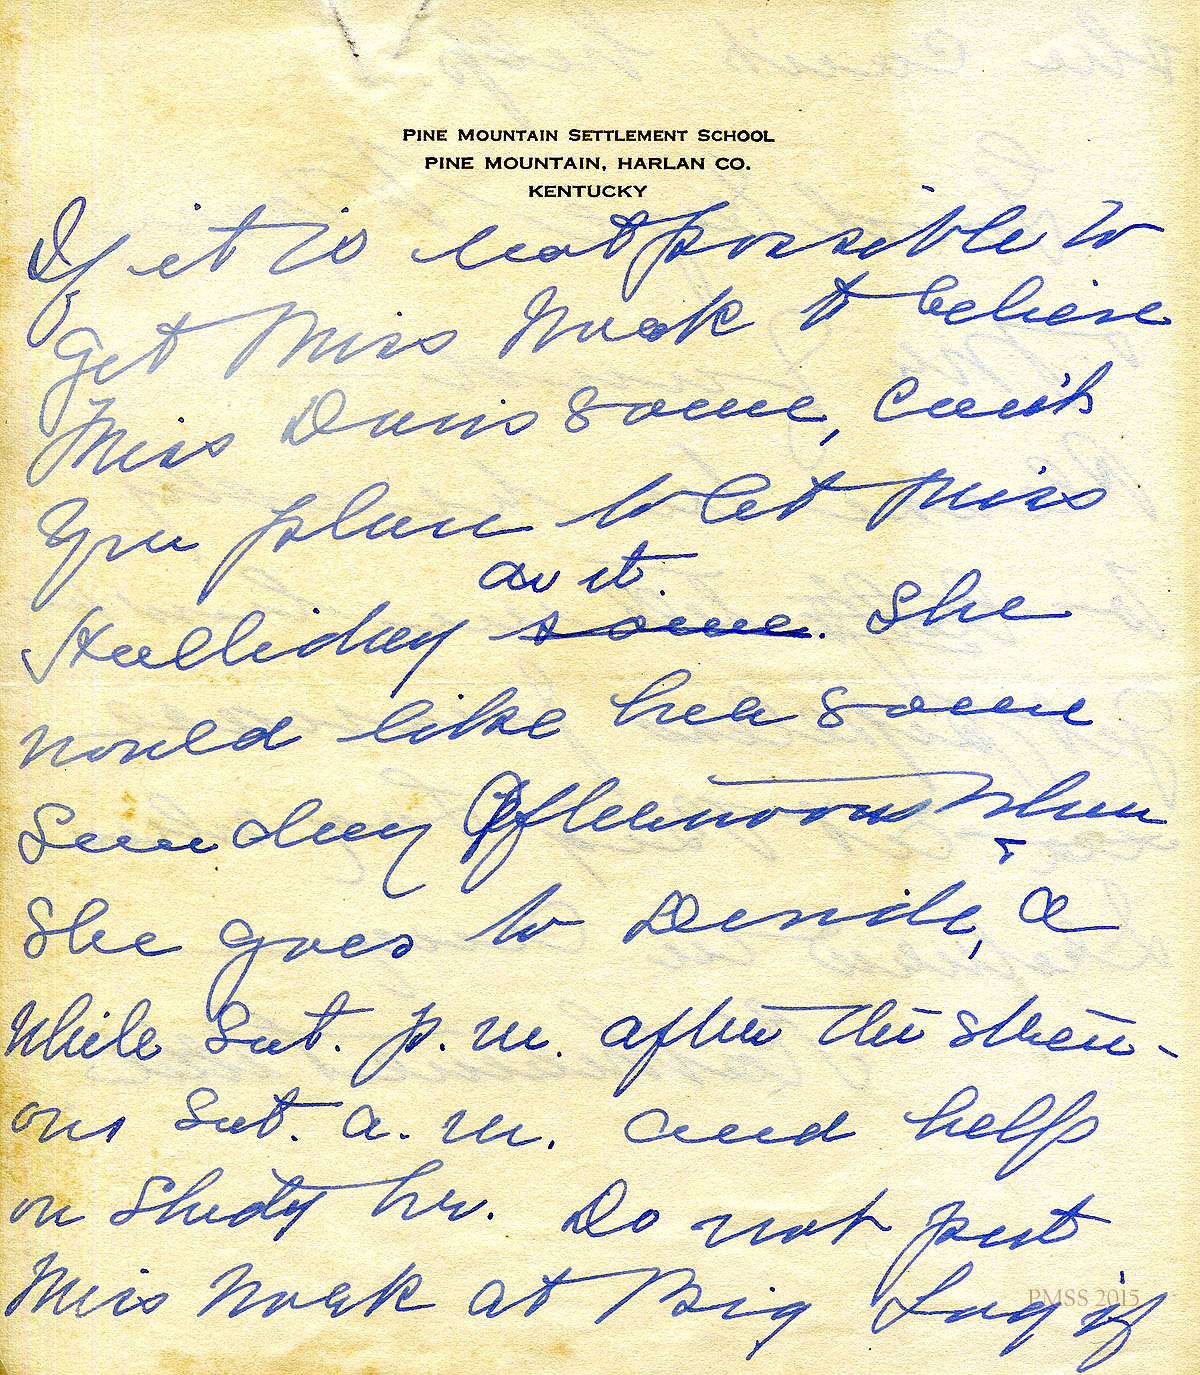 PINE MOUNTAIN SETTLEMENT SCHOOL
PINE MOUNTAIN, HARLAN CO.
KENTUCKY
If it is not possible to
get Miss Noak to relieve
Miss Davis some, can't
you plan to let Miss
do it
Halliday some. She
would like her some
Sunday afternoons when
she goes to a
while Sat. p.m. after the strenu-
ous Sat. a.m. and help
on study hr. Do not put
Miss Noak at Big Log if
PMSS 2015